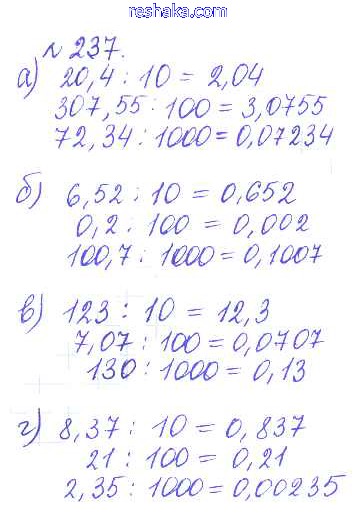 reshaka.com
№ 237.
а) 20,4 : 10 = 2,04
307,55 : 100 = 3,0755
72,34 : 1000 = 0,07234
б) 6,52 : 10 = 0,652
0,2 : 100 = 0,002
100,7 : 1000 = 0,1007
в) 123 : 10 = 12,3
7,07 : 100 = 0,0707
130 : 1000 = 0,13
г) 8,37 : 10 = 0,837
21 : 100 = 0,21
2,35 : 1000 = 0,00235